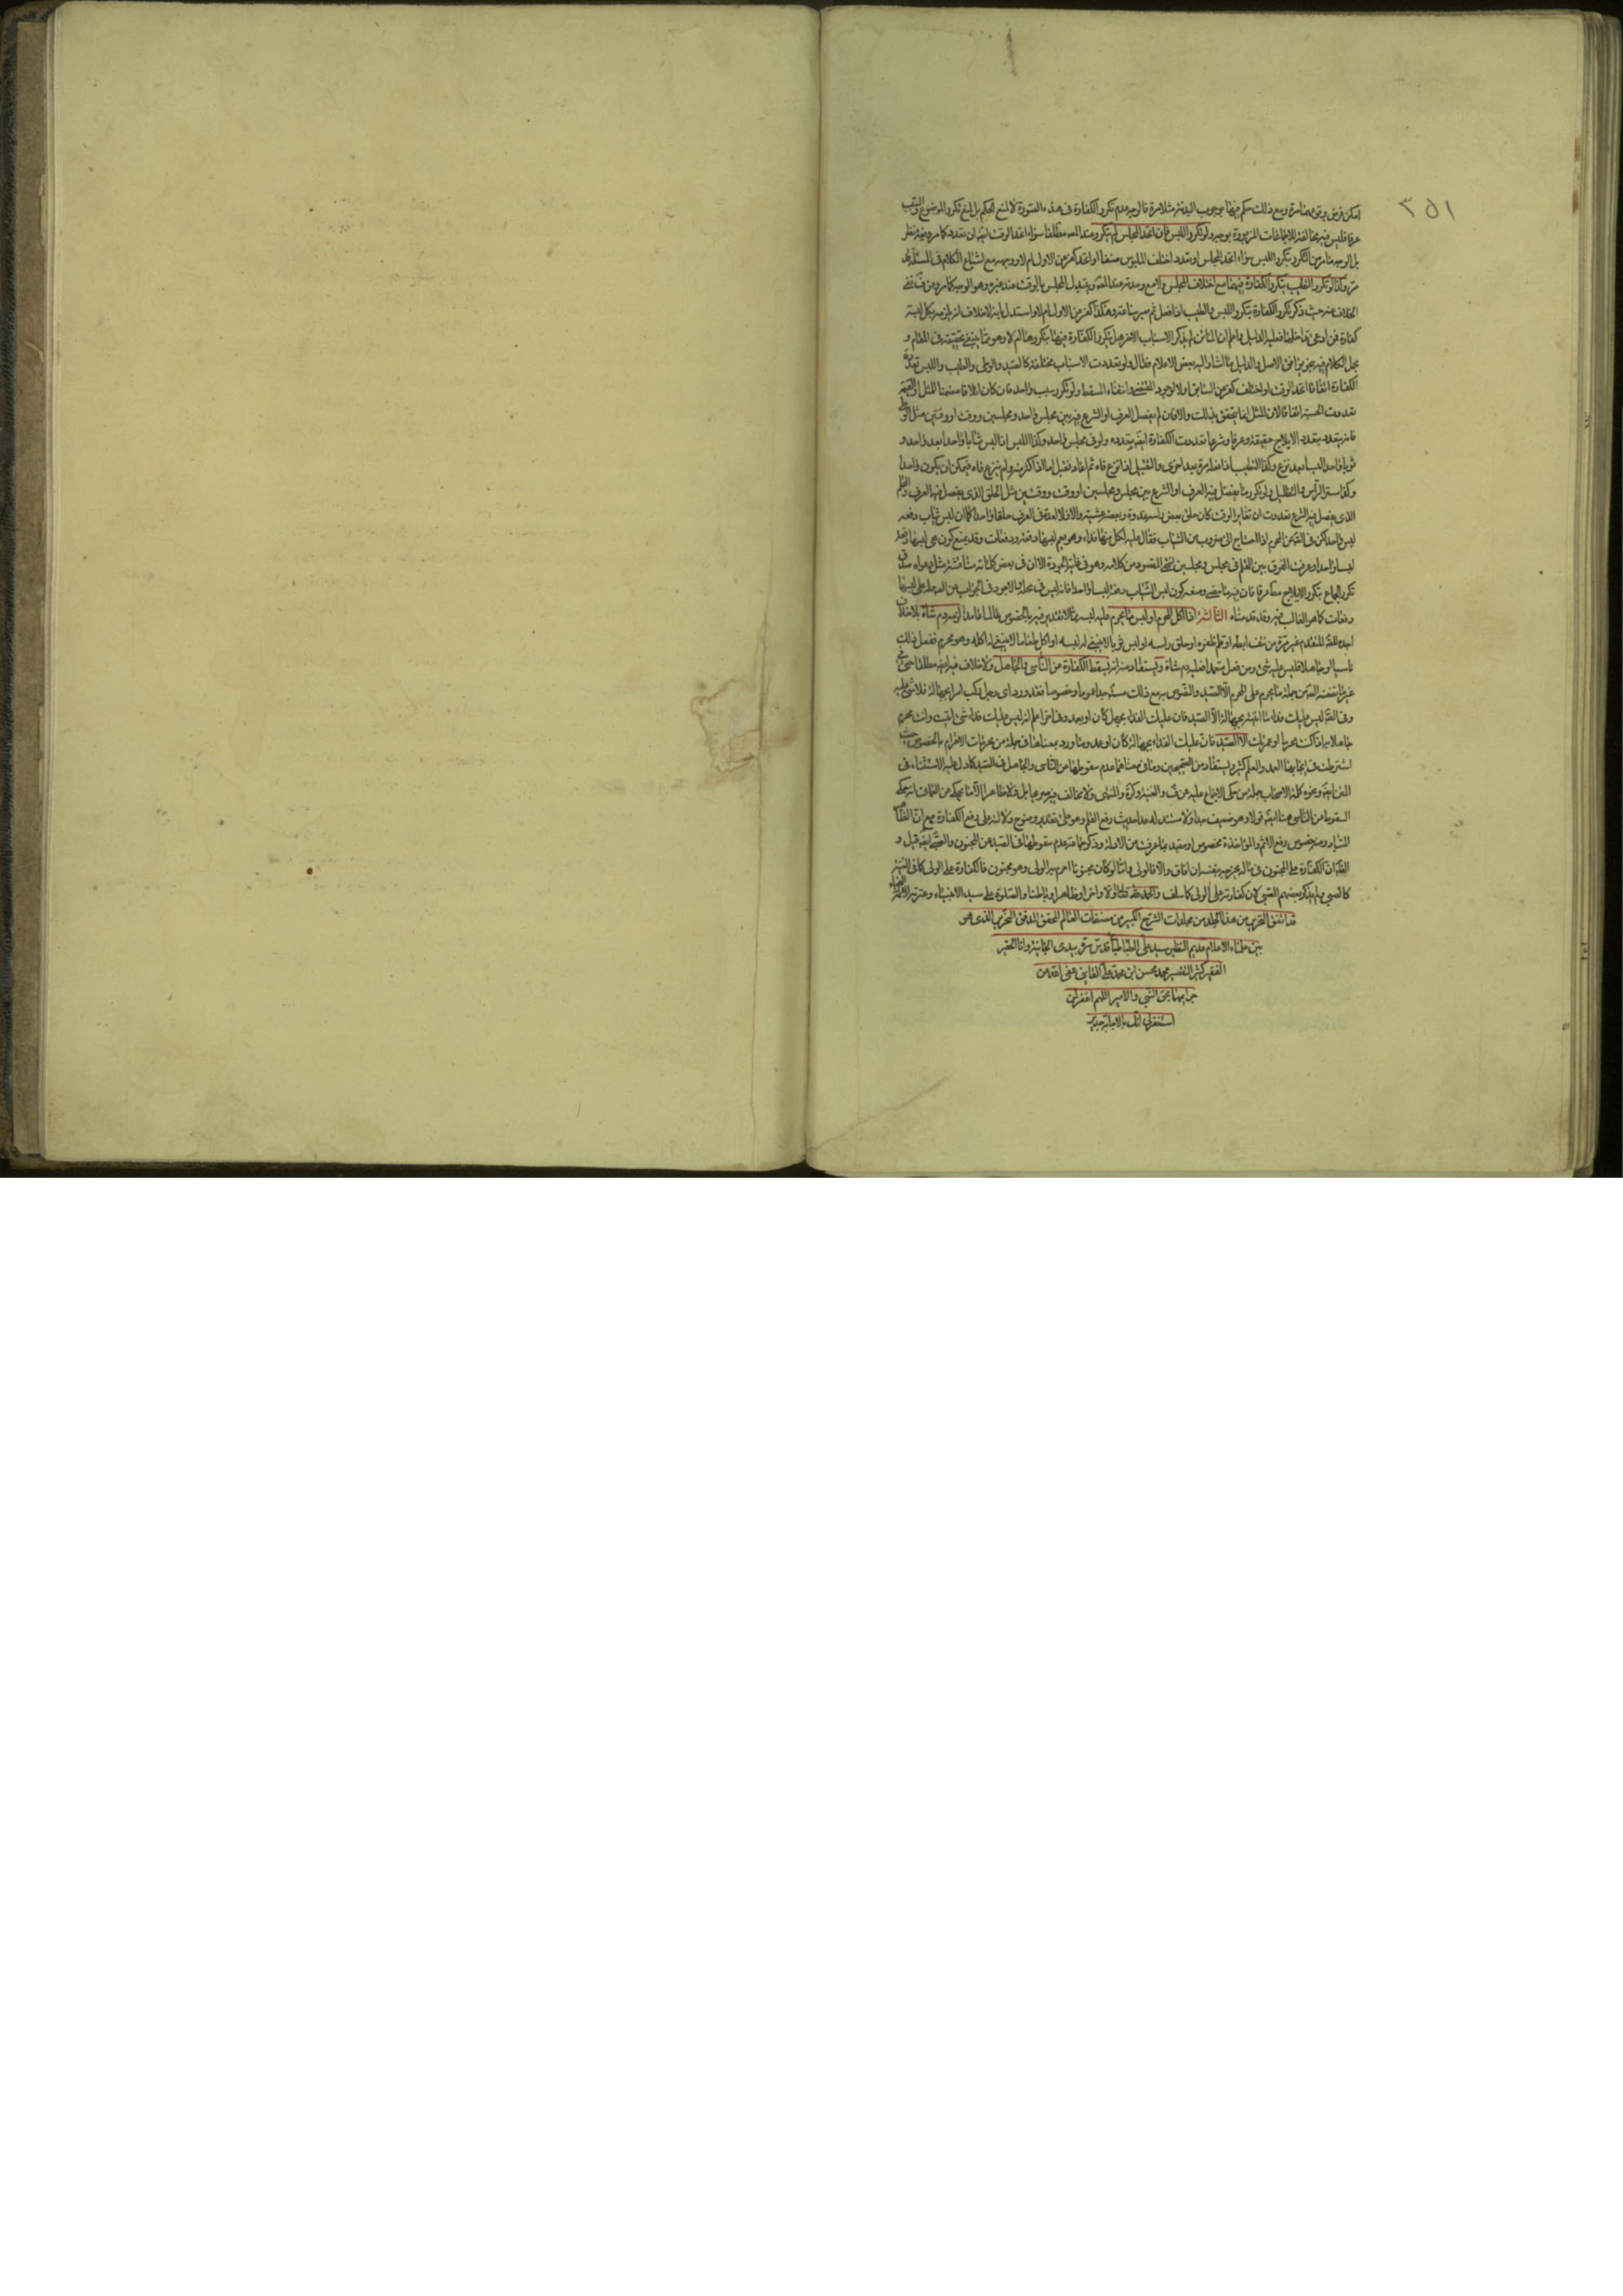 ٣٥١
امكن فرض وقوعهما مرة ومع ذلك حكم فيها بوجوب البدنة مثلا مرة فالوجه عدم تكرر الكفارة في هذه الصورة لا لمنع الحكم بل لمنع تكرر الموضوع والسبب
عرفا فليس فيه مخالفة للاجماعات المزبورة بوجه ولو تكرر اللبس فان اتحد المجلس لم يتكرر عند المص مطلقا سواء اتحد الوقت ام تعدد كما مر وفيه نظر
بل الوجه ما مر من التكرر بتكرر اللبس سواء اتحد المجلس او تعدد اختلف الملبوس صنفا او اتحد كفر عن الاول ام لا ووجهه مع اشباع الكلام في المسئلة قد
مر وكذا لو تكرر الطيب يتكرر الكفارة فيهما مع اختلاف المجلس ولا مع وحدته عند المص وبتبديل المجلس بالوقت عند غيره وهو الوجه كما مر وعن
الخلاف عنه حيث ذكر تكرر الكفارة بتكرر اللبس والطيب اذا فعل ثم صبر ساعة وهكذا كفر عن الاول ام لا واستدل بانه لا خلاف انه يلزمه بكل لبسة
كفارة فمن ادعى تداخلها فعليه الدليل واعلم ان الماتن لم يذكر الاسباب الاخر هل يتكرر الكفارة فيها بتكررها ام لا وهو مما ينبغي تحقيقه في المقام و
مجمل الكلام فيه بموافق الاصل والدليل ما اشار اليه بعض الاعلام فقال ولو تعددت الاسباب مختلفة كالصيد والوطى والطيب واللبس تعددت
الكفارة اتفاقا اتحد الوقت او اختلف كفر عن السابق او لا لوجود المقتضي وانتفاء المسقط ولو تكرر سبب واحد فان كان اتلافا مضمنا للمثل او القيمة
تعددت بحسبه اتفاقا لان المثل انما يتحقق بذلك والا فان لم يفصل العرف او الشرع فيه بين مجلس واحد ومجلسين ووقت او وقتين مثل الوطى
فانه يتعدد بتعدد الايلاج حقيقة وعرفا وشرعا تعددت الكفارة ايضا بتعدده ولو في مجلس واحد وكذا اللبس اذا لبس ثيابا واحدا بعد واحد و
ثوبا واحدا لبسا بعد نزع وكذا التطيب اذا فعله مرة بعد اخرى والتقبيل اذا نزع فاه ثم اعاد فقبل اما اذا كثر منه ولم ينزع فاه فيمكن ان يكون واحدا
وكذا ستر الراس والتظليل ولو تكرر ما يفصل فيه العرف او الشرع بين مجلس ومجلسين او وقت ووقتين مثل الحلق الذي يفصل فيه العرف والقلم
الذي يفصل فيه الشرع تعددت ان تغاير الوقت كان حلق بعض راسه غدوة وبعضه عشية والا فلا لعده في العرف حلقا واحدا كما ان لبس ثياب دفعة
لبس واحد لكن في الصحيح عن المحرم اذا احتاج الى ضروب من الثياب فقال عليه لكل منها فداء وهو يعم لبسها دفعة ودفعات وقد يمنع كون لبسها دفعة
لبسا واحدا وعرفت الفرق بين القلم في مجلس ومجلسين انتهى المقصود من كلامه وهو في غاية الجودة الا ان في بعض كلماته مناقشة مثل دعواه صدق
تكرر الجماع بتكرر الايلاج مطلقا عرفا فان فيه ما مضى ومنعه كون لبس الثياب دفعة لبسا واحدا فانه ليس في محله والاجود في الجواب عن الصحيحة حملها على لبسها
دفعات كما هو الغالب فيه وقد قدمناه الثالثة اذا اكل المحرم او لبس ما يحرم عليه لبسه مما لا تقدير فيه بالخصوص عالما عامدا لزمه دم شاة بلا خلاف
اجده للصحيح المتقدم غير مرة من نتف ابطه او قلم ظفره او حلق راسه او لبس ثوبا لا ينبغي له لبسه او اكل طعاما لا ينبغي له اكله وهو محرم ففعل ذلك
ناسيا او جاهلا فليس عليه شيء ومن فعله متعمدا فعليه دم شاة ويستفاد منه انه يسقط الكفارة عن الناسي والجاهل ولا خلاف فيه ايضا مطلقا حتى في
غير ما تضمنه الصحيح من جملة ما يحرم على المحرم الا الصيد والنصوص به مع ذلك مستفيضة جدا عموما وخصوصا فقد ورد اي رجل ركب امرا بجهالة فلا شيء عليه
وفي الصحيح ليس عليك فداء ما اتيته بجهالة الا الصيد فان عليك الفداء بجهل كان او بعمد وفي اخر اعلم انه ليس عليك فداء شيء اتيت وانت محرم
جاهلا به اذا كنت محرما او عمرتك الا الصيد فان عليك الفداء بجهالة كان او عمد وما ورد بمعناها في جملة من محرمات الاحرام بالخصوص حيث
اشترطت في ايجابها العمد والعلم كثير ويستفاد من الصحيحين وما في معناهما عدم سقوطها عن الناسي والجاهل في الصيد كما دل عليه الاستثناء في
المتن ايضا وعزوه كلمة الاصحاب جملة من حكى الاجماع عليه عن ف والغنية وكرة والمنتهى ولا مخالف فيه صريحا بل ولا ظاهرا الا ما يحكى عن العماني انه حكى
السقوط عن الناسي هنا ايضا قولا وهو ضعيف جدا ولا مستند له عدا حديث رفع القلم وهو على تقدير وضوح دلالته على رفع الكفارة مع ان الظاهر
المتبادر منه خصوص رفع الاثم والمؤاخذة مخصوص او مقيد بما عرفت من الادلة وذكر جماعة عدم سقوطها في الصيد عن المجنون والصبي ايضا قيل و
الظاهر ان الكفارة على المجنون في ماله يخرجه بنفسه ان افاق والا فالولى واما لو كان مجنونا احرم به الولى وهو مجنون فالكفارة على الولى كما في الغنية
كالصبي ولم يذكر بعضهم الصبي لان كفارته على الولى كما سلف والحمد لله تعالى اولا واخرا وظاهرا وباطنا والصلوة على سيد الانبياء وعترته
قد اتفق التحرير من هذا الجلد من مجلدات الشرح الكبير من مصنفات العالم المحقق المدقق النحرير الذي هو
بين علماء الاعلام عديم النظير سيد علي الطباطبا قدس سره بيدى الجانية وانا الحقير
الفقير كثير التقصير محمد محسن ابن محمد علي القايني عفى الله عن
جرايمهما بحق النبي والامير اللهم اغفر لمن
استغفر لي انك بالاجابة جدير